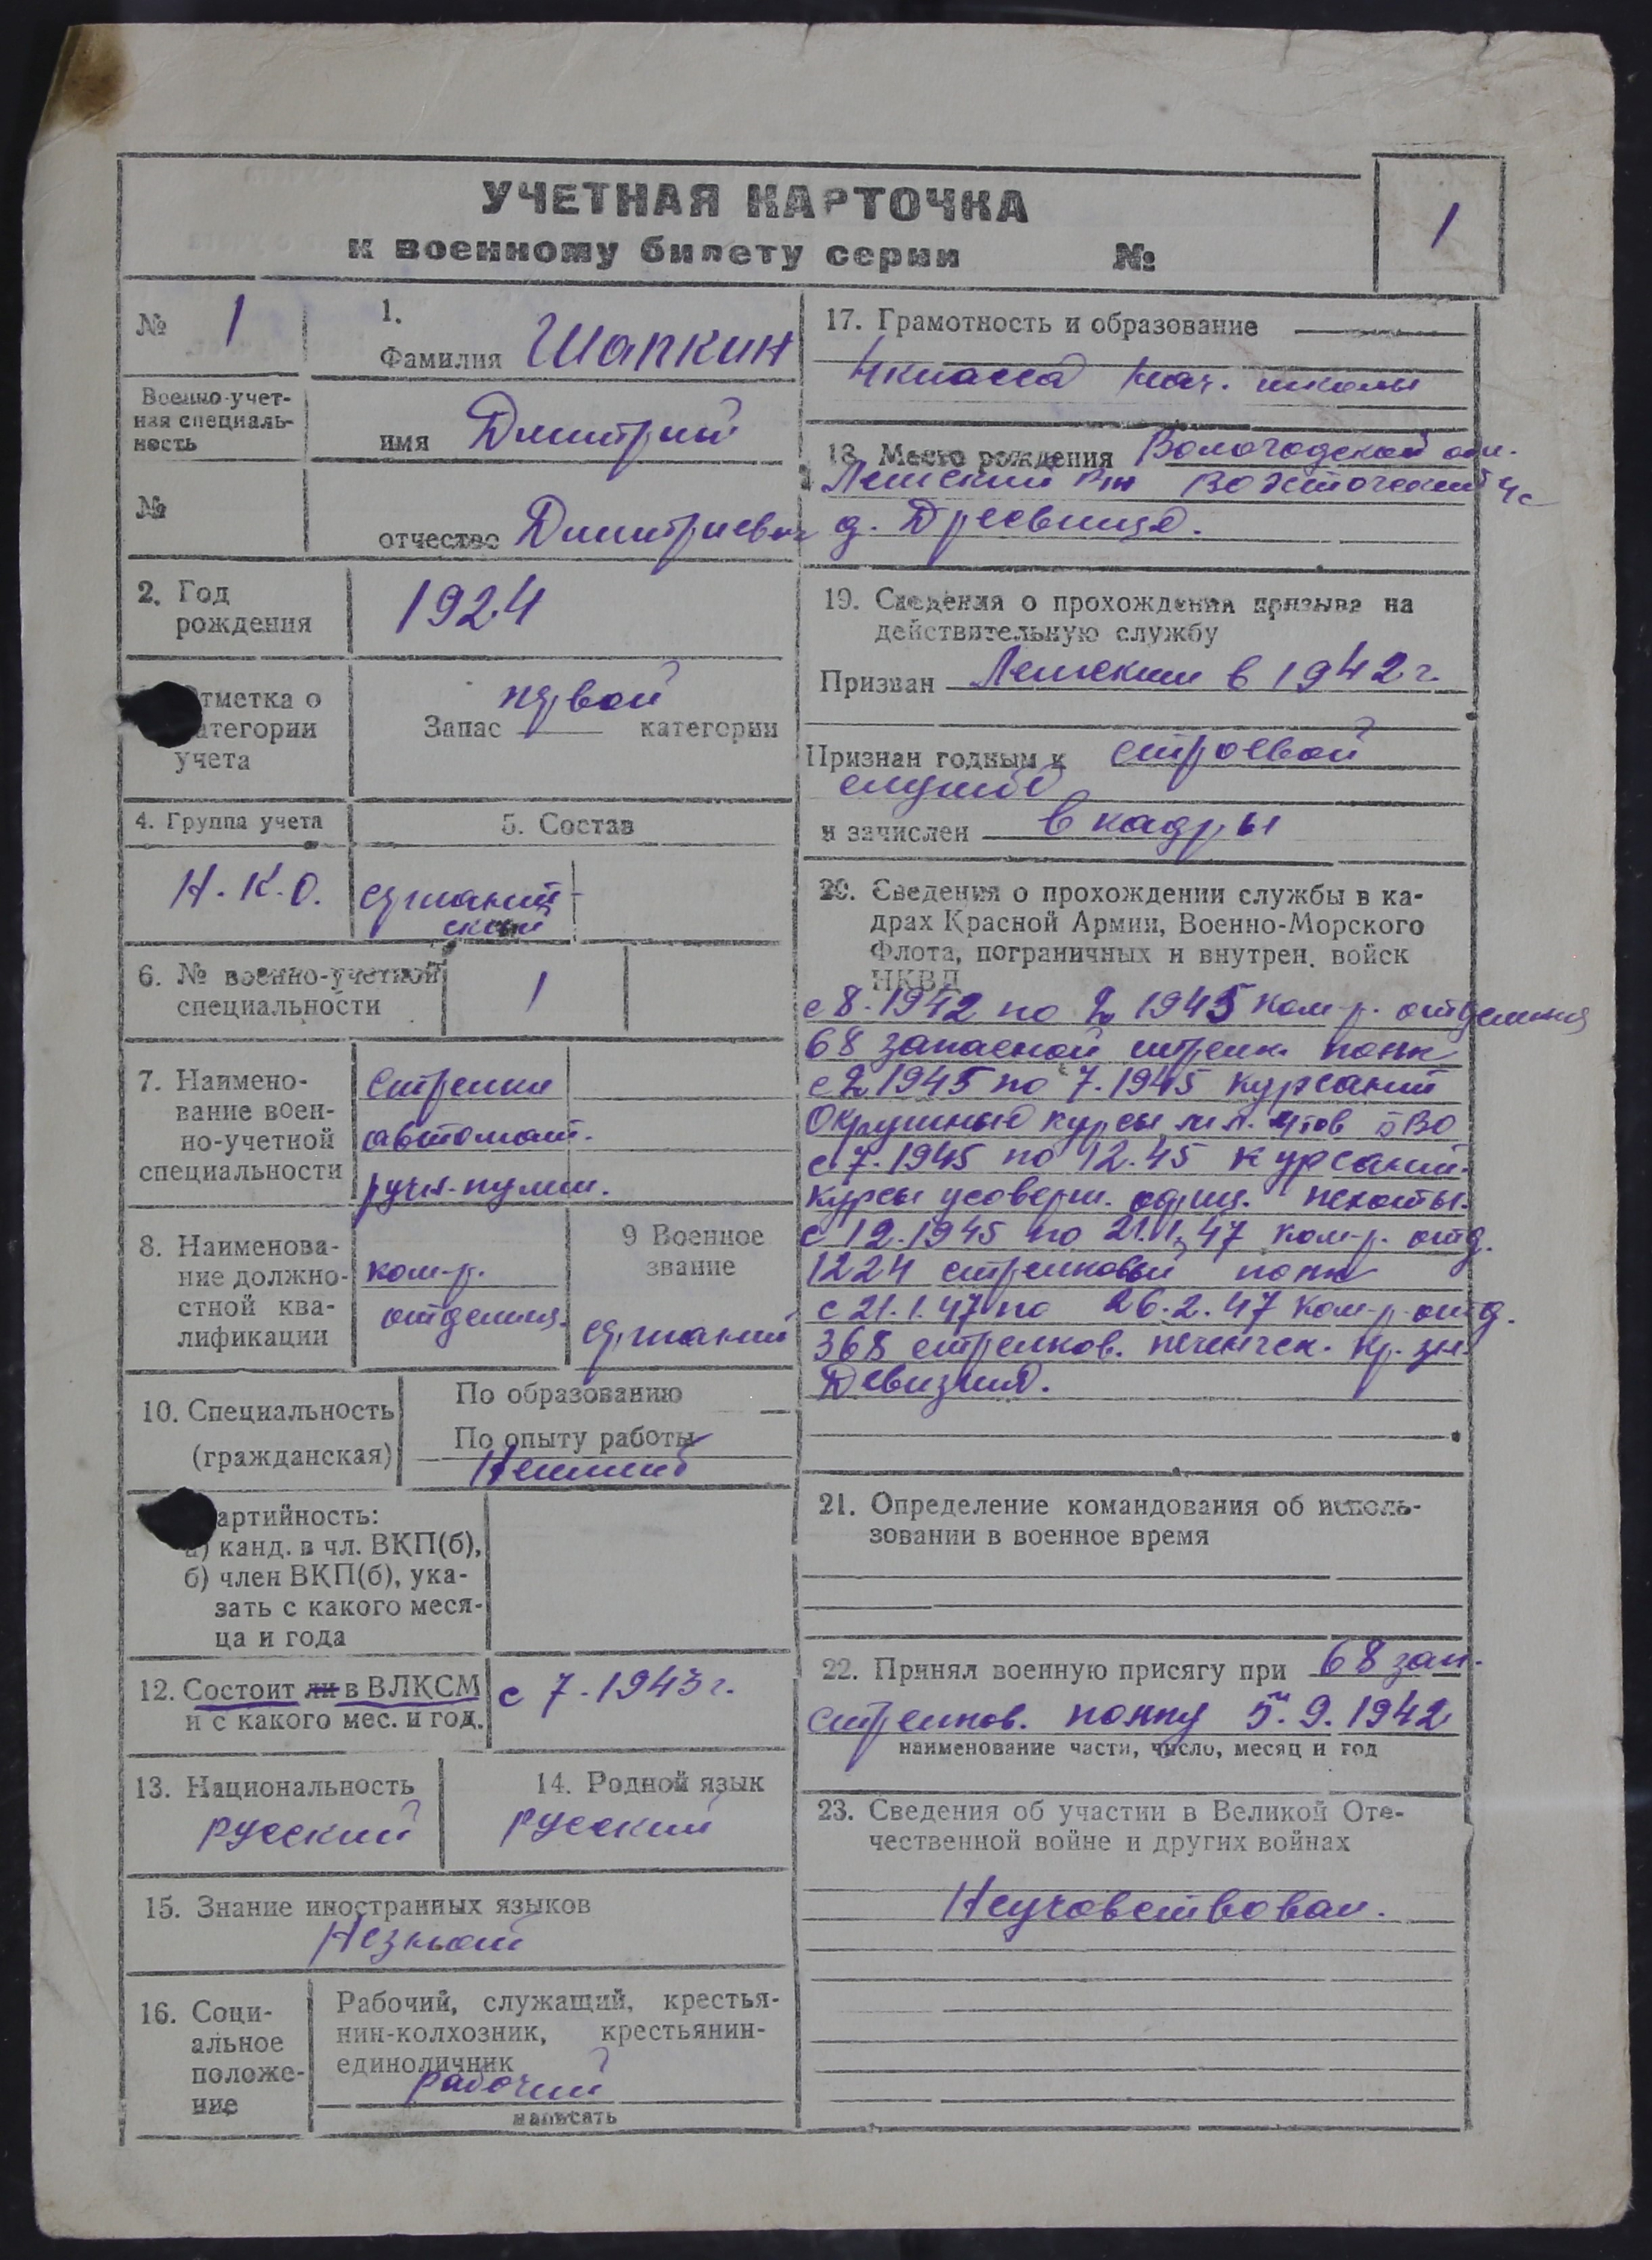 УЧЕТНАЯ КАРТОЧКА
к военному билету серии №
1
№ 1
1.
Фамилия Шапкин
Военно-учет-
ная специаль-
ность
имя Дмитрий
№
отчество Дмитриевич
2. Год
рождения
1924
Отметка о
категории
учета
первой
Запас категории
4. Группа учета
5. Состав
Н.К.О.
сержант
ский
6. № военно-учетной
специальности
1
7. Наимено-
вание воен-
но-учетной
специальности
Стрелки
автомат.
ручн-пулем.
8. Наименова-
ние должно-
стной ква-
лификации
ком-р.
отделен.
9 Военное
звание
сержант
10. Специальность
(гражданская)
По образованию —
По опыту работы
Неимеет
артийность:
а) канд. в чл. ВКП(б),
б) член ВКП(б), ука-
зать с какого меся-
ца и года
12. Состоит ли в ВЛКСМ
и с какого мес. и год.
с 7.1943г.
13. Национальность
русский
14. Родной язык
русский
15. Знание иностранных языков
Незнает
16. Соци-
альное
положе-
ние
Рабочий, служащий, крестья-
нин-колхозник, крестьянин-
единоличник
рабочий
написать
17. Грамотность и образование
4 класса нач. школы
18. Место рождения Вологодской обл.
Лежский р-н
д. Дресвище.
19. Сведения о прохождении призыва на
действительную службу
Призван Лежским в 1942г.
Признан годным к строевой
службе
и зачислен в кадры
20. Сведения о прохождении службы в ка-
драх Красной Армии, Военно-Морского
Флота, пограничных и внутрен. войск
НКВД
с 8.1942 по 2 1945 ком-р. отделения
68 запасной стрелк. полк
с 2 1945 по 7.1945 курсант
Окружные курсы мл. ВО
с 7.1945 по 12.45 курсант.
курсы усоверш. офиц. пехоты.
с 12.1945 по 21.1.47 ком-р. отд.
1224 стрелковый полк
с 21.1.47 по 26.2.47 ком-р-отд.
368 стрелков. печенгск. Кр. зн
Девизия.
21. Определение командования об исполь-
зовании в военное время
22. Принял военную присягу при 68 зап.
стрелков. полку 5. 9. 1942
наименование части, число, месяц и год
23. Сведения об участии в Великой Оте-
чественной войне и других войнах
Неучавствовал.